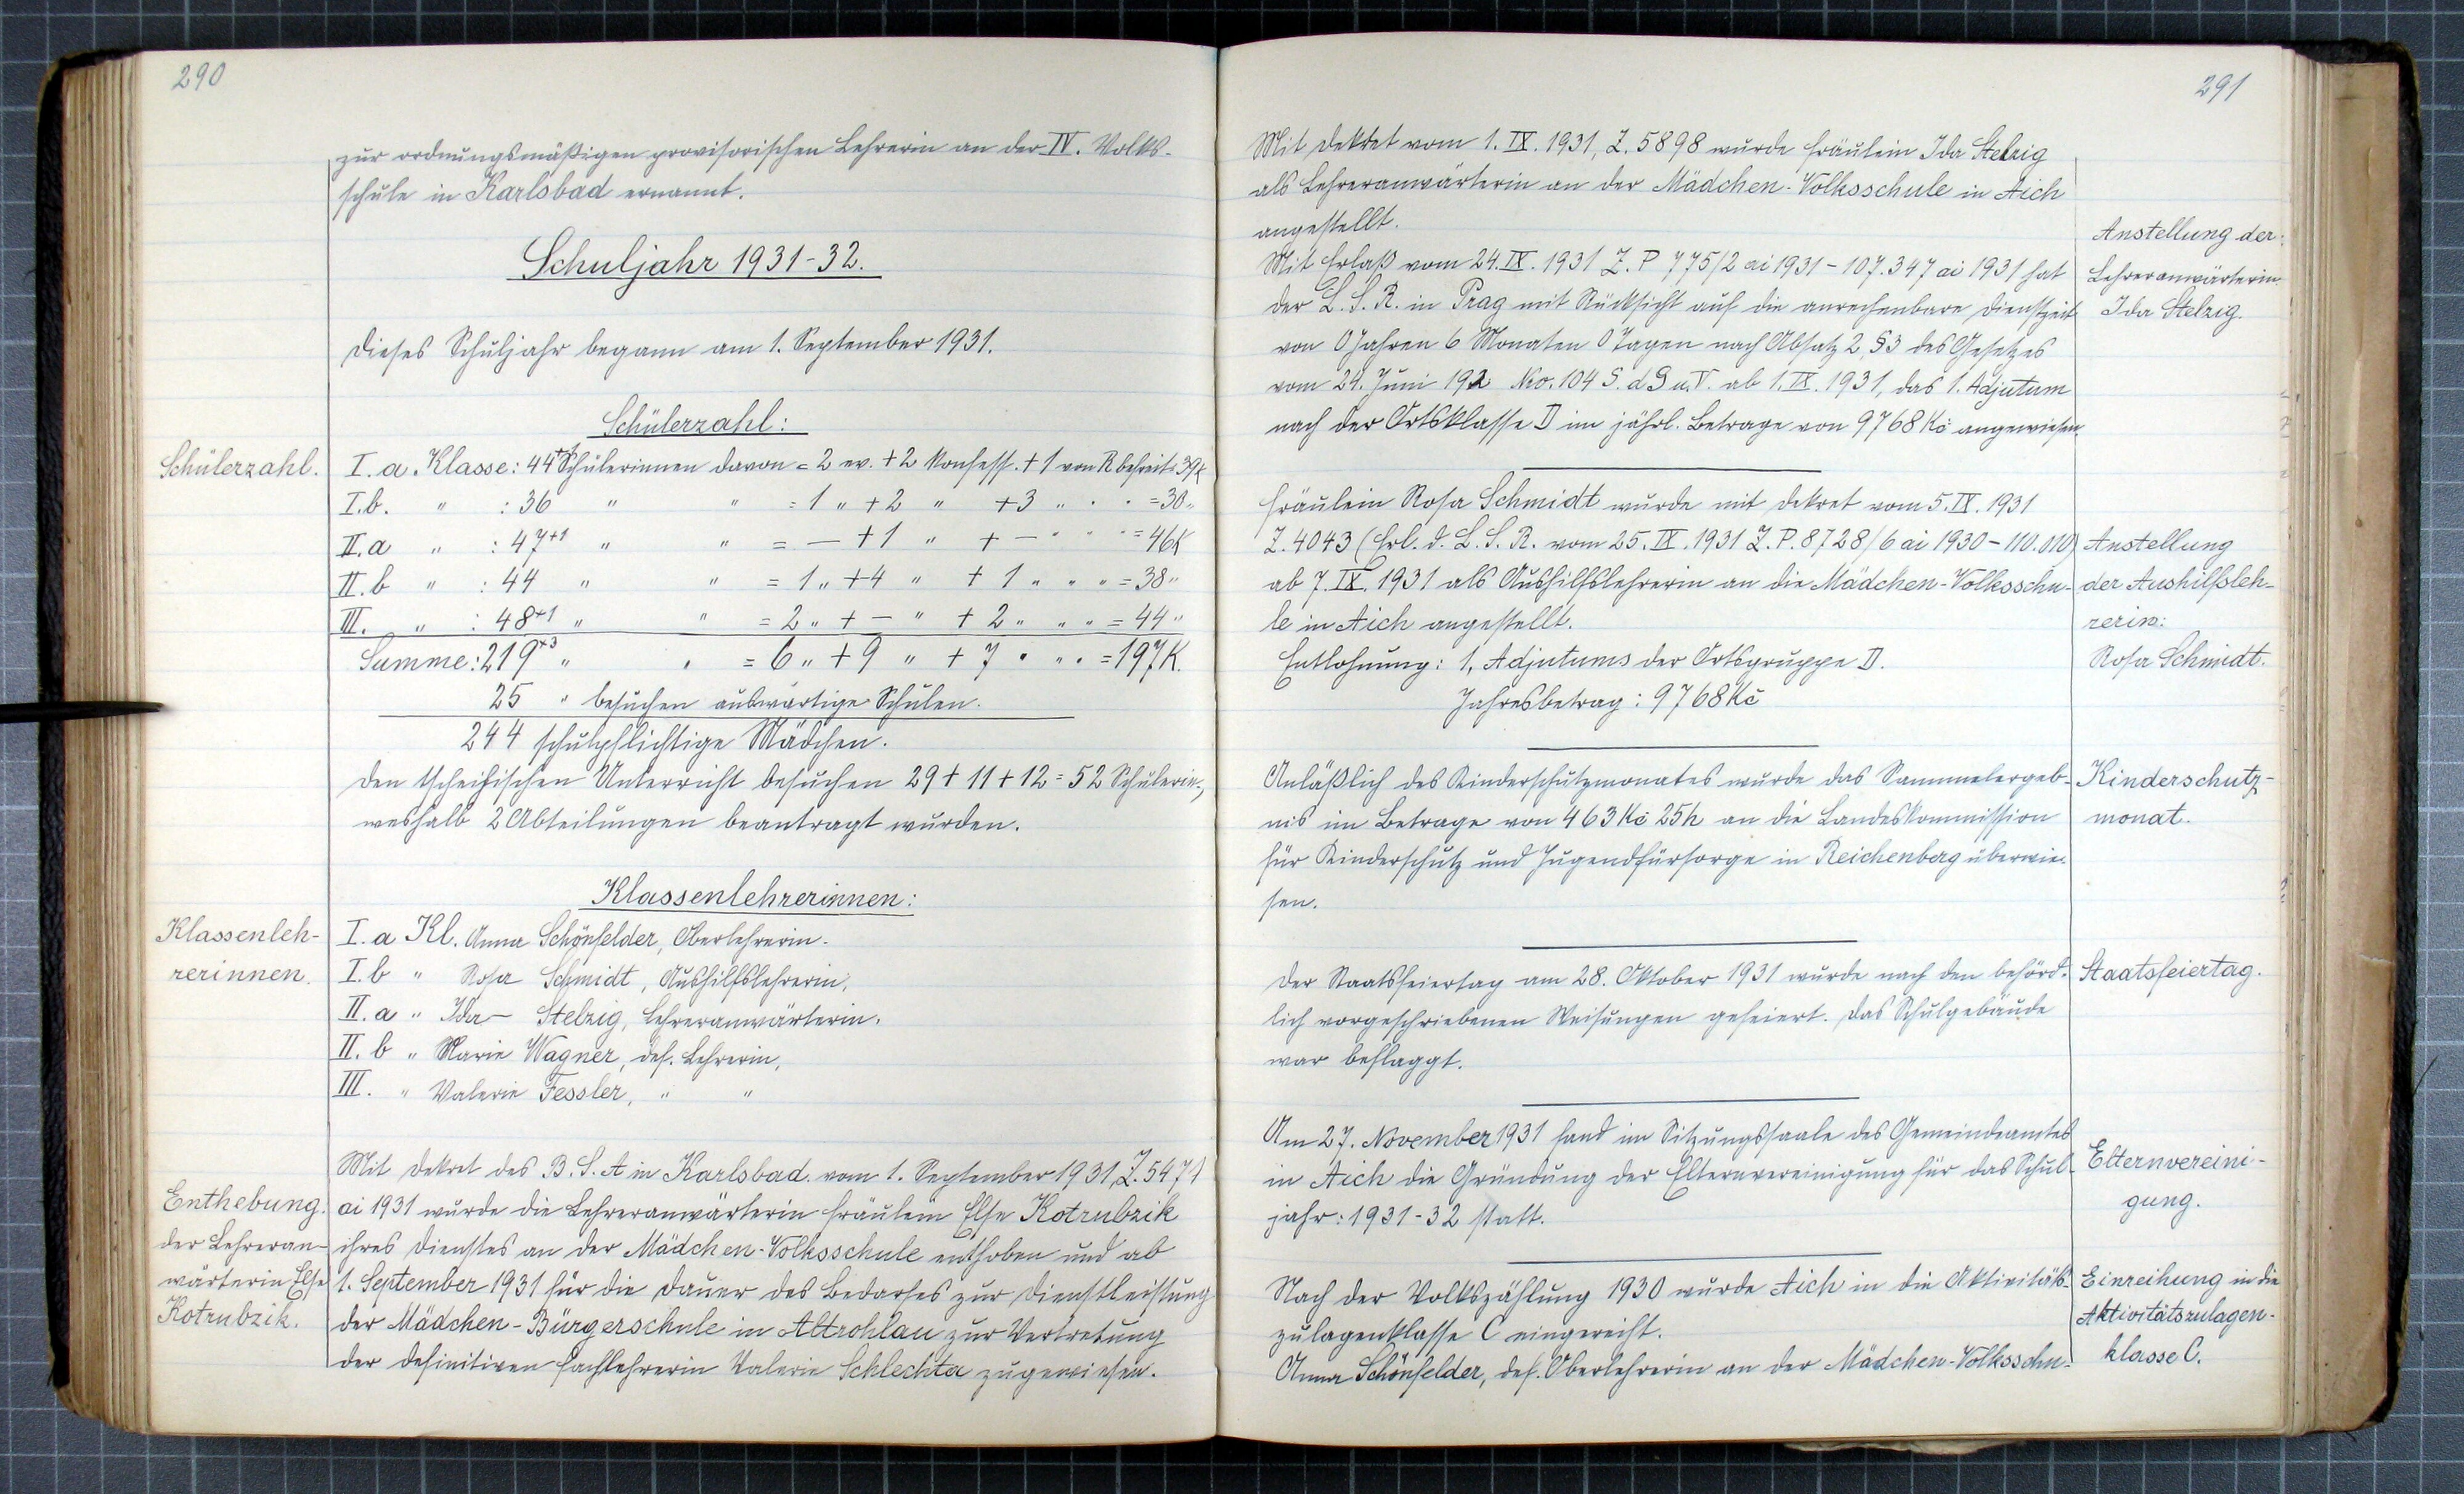 290
zur ordnungsmäßigen provisorischen Lehrerin an der IV. Volks-
schule in Karlsbad ernannt.
Schuljahr 1931-32.
Dieses Schuljahr begann am 1. September 1931.
Schülerzahl:
Schülerzahl.
I. a. Klasse: 44+1 Schülerinnen davon = 2 ev. + 2 konfessl. + 1 von R befreit = 39K
I. b. " : 36 " " = 1 " + 2 " + 3 " " " = 30 "
II. a " : 47+1 " " = — + 1 " + — " " " = 46K
II. b " : 44 " " = 1 " + 4 " + 1 " " " = 38 "
III. " : 48+1 " " = 2 " + — " + 2 " " " = 44 "
Summe: 219+3 " " = 6 " + 9 " + 7 " " " = 197K.
25 " besuchen auswärtige Schulen.
244 schulpflichtige Mädchen.
Den tschechischen Unterricht besuchen 29 + 11 + 12 = 52 Schülerin-,
weshalb 2 Abteilungen beantragt wurden.
Klassenlehrerinnen:
Klassenleh-
rerinnen.
I. a Kl. Anna Schönfelder, Oberlehrerin.
I. b " Rosa Schmidt, Aushilfslehrerin,
II. a " Ida — Stelzig, Lehreranwärterin.
II. b " Marie Wagner, def. Lehrerin,
III. " Valerie Fessler, " "
Enthebung
der Lehreran-
wärterin Else
Kotrubzik.
Mit Dekret des B. S. A in Karlsbad vom 1. September 1931, Z. 5471
ai 1931 wurde die Lehreranwärterin Fräulein Else Kotrubzik
ihres Dienstes an der Mädchen-Volksschule enthoben und ab
1. September 1931 für die Dauer des Bedarfes zur Dienstleistung
der Mädchen-Bürgerschule in Altrohlau zur Vertretung
der definitiven Fachlehrerin Valerie Schlechta zugewiesen.
291
Mit Dektet vom 1. IX. 1931, Z. 5898 wurde Fräulein Ida Stelzig
als Lehreranwärterin an der Mädchen-Volksschule in Aich
angestellt.
Anstellung der
Lehreranwärterin
Ida Stelzig.
Mit Erlaß vom 24. IX. 1931 Z. P 775/2 ai 1931 - 107.347 ai 1931 hat
der L. S. R. in Prag mit Rücksicht auf die anrechenbare Dienstzeit
von 0 Jahren 6 Monaten 0 Tagen nach Absatz 2, §3 des Gesetzes
vom 24. Juni 192 No. 104 S. d G u. V. ab 1. IX. 1931, das 1. Adjutum
nach der Ortsklasse D im jährl. Betrage von 9768 Kč angewiesen.
Fräulein Rosa Schmidt wurde mit Dekret vom 5. IX. 1931
Z. 4043 (Erl. d. L. S. R. vom 25. IX. 1931 Z. P. 8728/6 ai 1930 - 110.010)
ab 7. IX. 1931 als Aushilfslehrerin an die Mädchen-Volksschu-
le in Aich angestellt.
Entlohnung: 1. Adjutums der Ortsgruppe D.
Jahresbetrag: 9768 Kč
Anstellung
der Aushilfsleh-
rerin:
Rosa Schmidt.
Anläßlich des Kinderschutzmonates wurde das Sammelergeb-
nis im Betrage von 463 Kč 25h an die Landeskommission
für Kinderschutz und Jugendfürsorge in Reichenberg überwie-
sen.
Kinderschutz-
monat.
Der Staatsfeiertag am 28. Oktober 1931 wurde nach den behörd-
lich vorgeschriebenen Weisungen gefeiert. Das Schulgebäude
war beflaggt.
Staatsfeiertag.
Am 27. November 1931 fand im Sitzungssaale des Gemeindeamtes
in Aich die Gründung der Elternvereinigung für das Schul-
jahr: 1931-32 statt.
Elternvereini-
gung.
Nach der Volkszählung 1930 wurde Aich in die Aktivitäts-
zulagenklasse C eingereiht.
Anna Schönfelder, def. Oberlehrerin an der Mädchen-Volksschu-
Einreihung in die
Aktivitätszulagen-
klasse C.